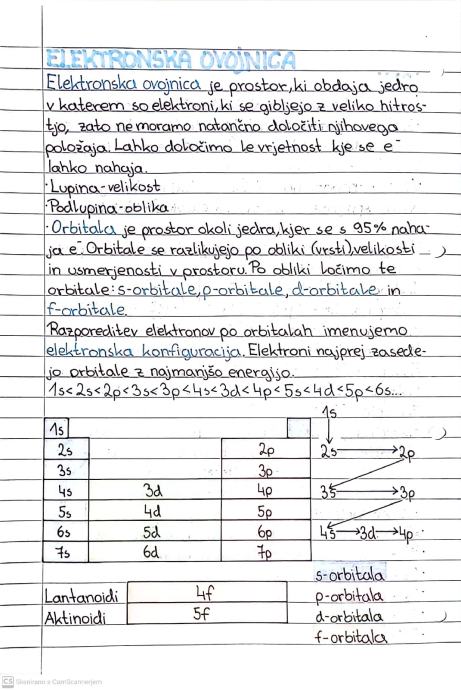 ELEKTRONSKA OVOJNICA
Elektronska ovojnica je prostor, ki obdaja jedro
v katerem so elektroni, ki se gibljejo z veliko hitros-
tjo, zato ne moramo natančno določiti njihovega
položaja. Lahko določimo le vrjetnost kje se e⁻
lahko nahaja.
·Lupina-velikost
·Podlupina-oblika
·Orbitala je prostor okoli jedra, kjer se s 95% naha-
ja e⁻. Orbitale se razlikujejo po obliki (vrsti), velikosti
in usmerjenosti v prostoru. Po obliki ločimo te
orbitale: s-orbitale, p-orbitale, d-orbitale in
f-orbitale.
Razporeditev elektronov po orbitalah imenujemo
elektronska konfiguracija. Elektroni najprej zasede-
jo orbitale z najmanjšo energijo.
1s<2s<2p<3s<3p<4s<3d<4p<5s<4d<5p<6s...
1s
2s 2p
3s 3p
4s 3d 4p
5s 4d 5p
6s 5d 6p
7s 6d 7p
1s
2s→2p
3s→3p
4s→3d→4p
Lantanoidi 4f
Aktinoidi 5f
s-orbitala
p-orbitala
d-orbitala
f-orbitala
CS Skenirano s CamScannerjem